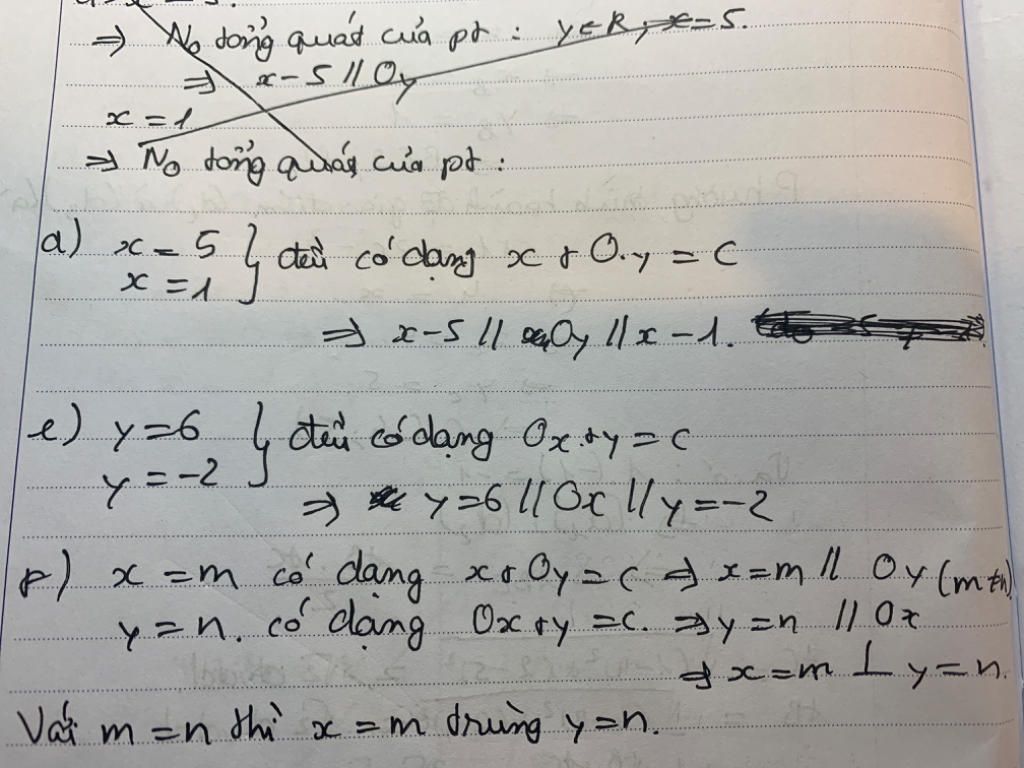 ⇒ No tổng quát của pt : y ∈ R, x = 5.
⇒ x - 5 // Oy
x = 1
⇒ No tổng quát của pt :
d) x = 5
x = 1 } đều có dạng x + 0.y = C
⇒ x - 5 // Oy // x - 1.
e) y = 6
y = -2 } đều có dạng 0x + y = c
⇒ y = 6 // Ox // y = -2
f) x = m có dạng x + 0y = c ⇒ x = m // Oy (m ≠ n)
y = n. có dạng 0x + y = c. ⇒ y = n // Ox
⇒ x = m ⊥ y = n.
Với m = n thì x = m trùng y = n.